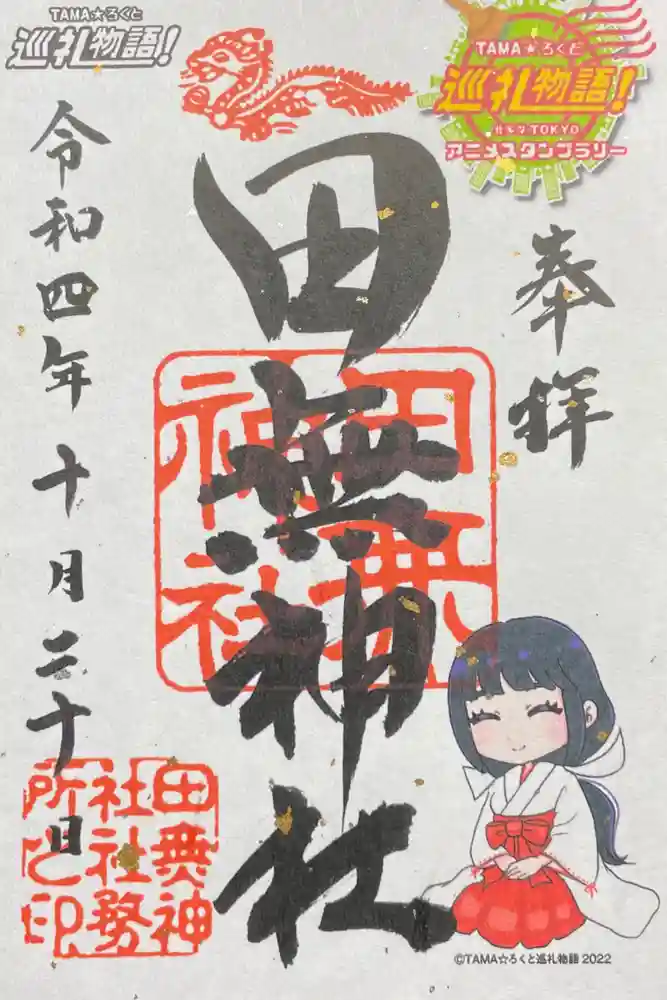 TAMA☆ろくと
巡礼物語!
TAMA☆ろくと
巡礼物語!
TOKYO
アニメスタンプラリー
奉拝
田無神社
田無神社
田無神社社務所之印
令和四年十月二十日
©TAMA☆ろくと巡礼物語 2022